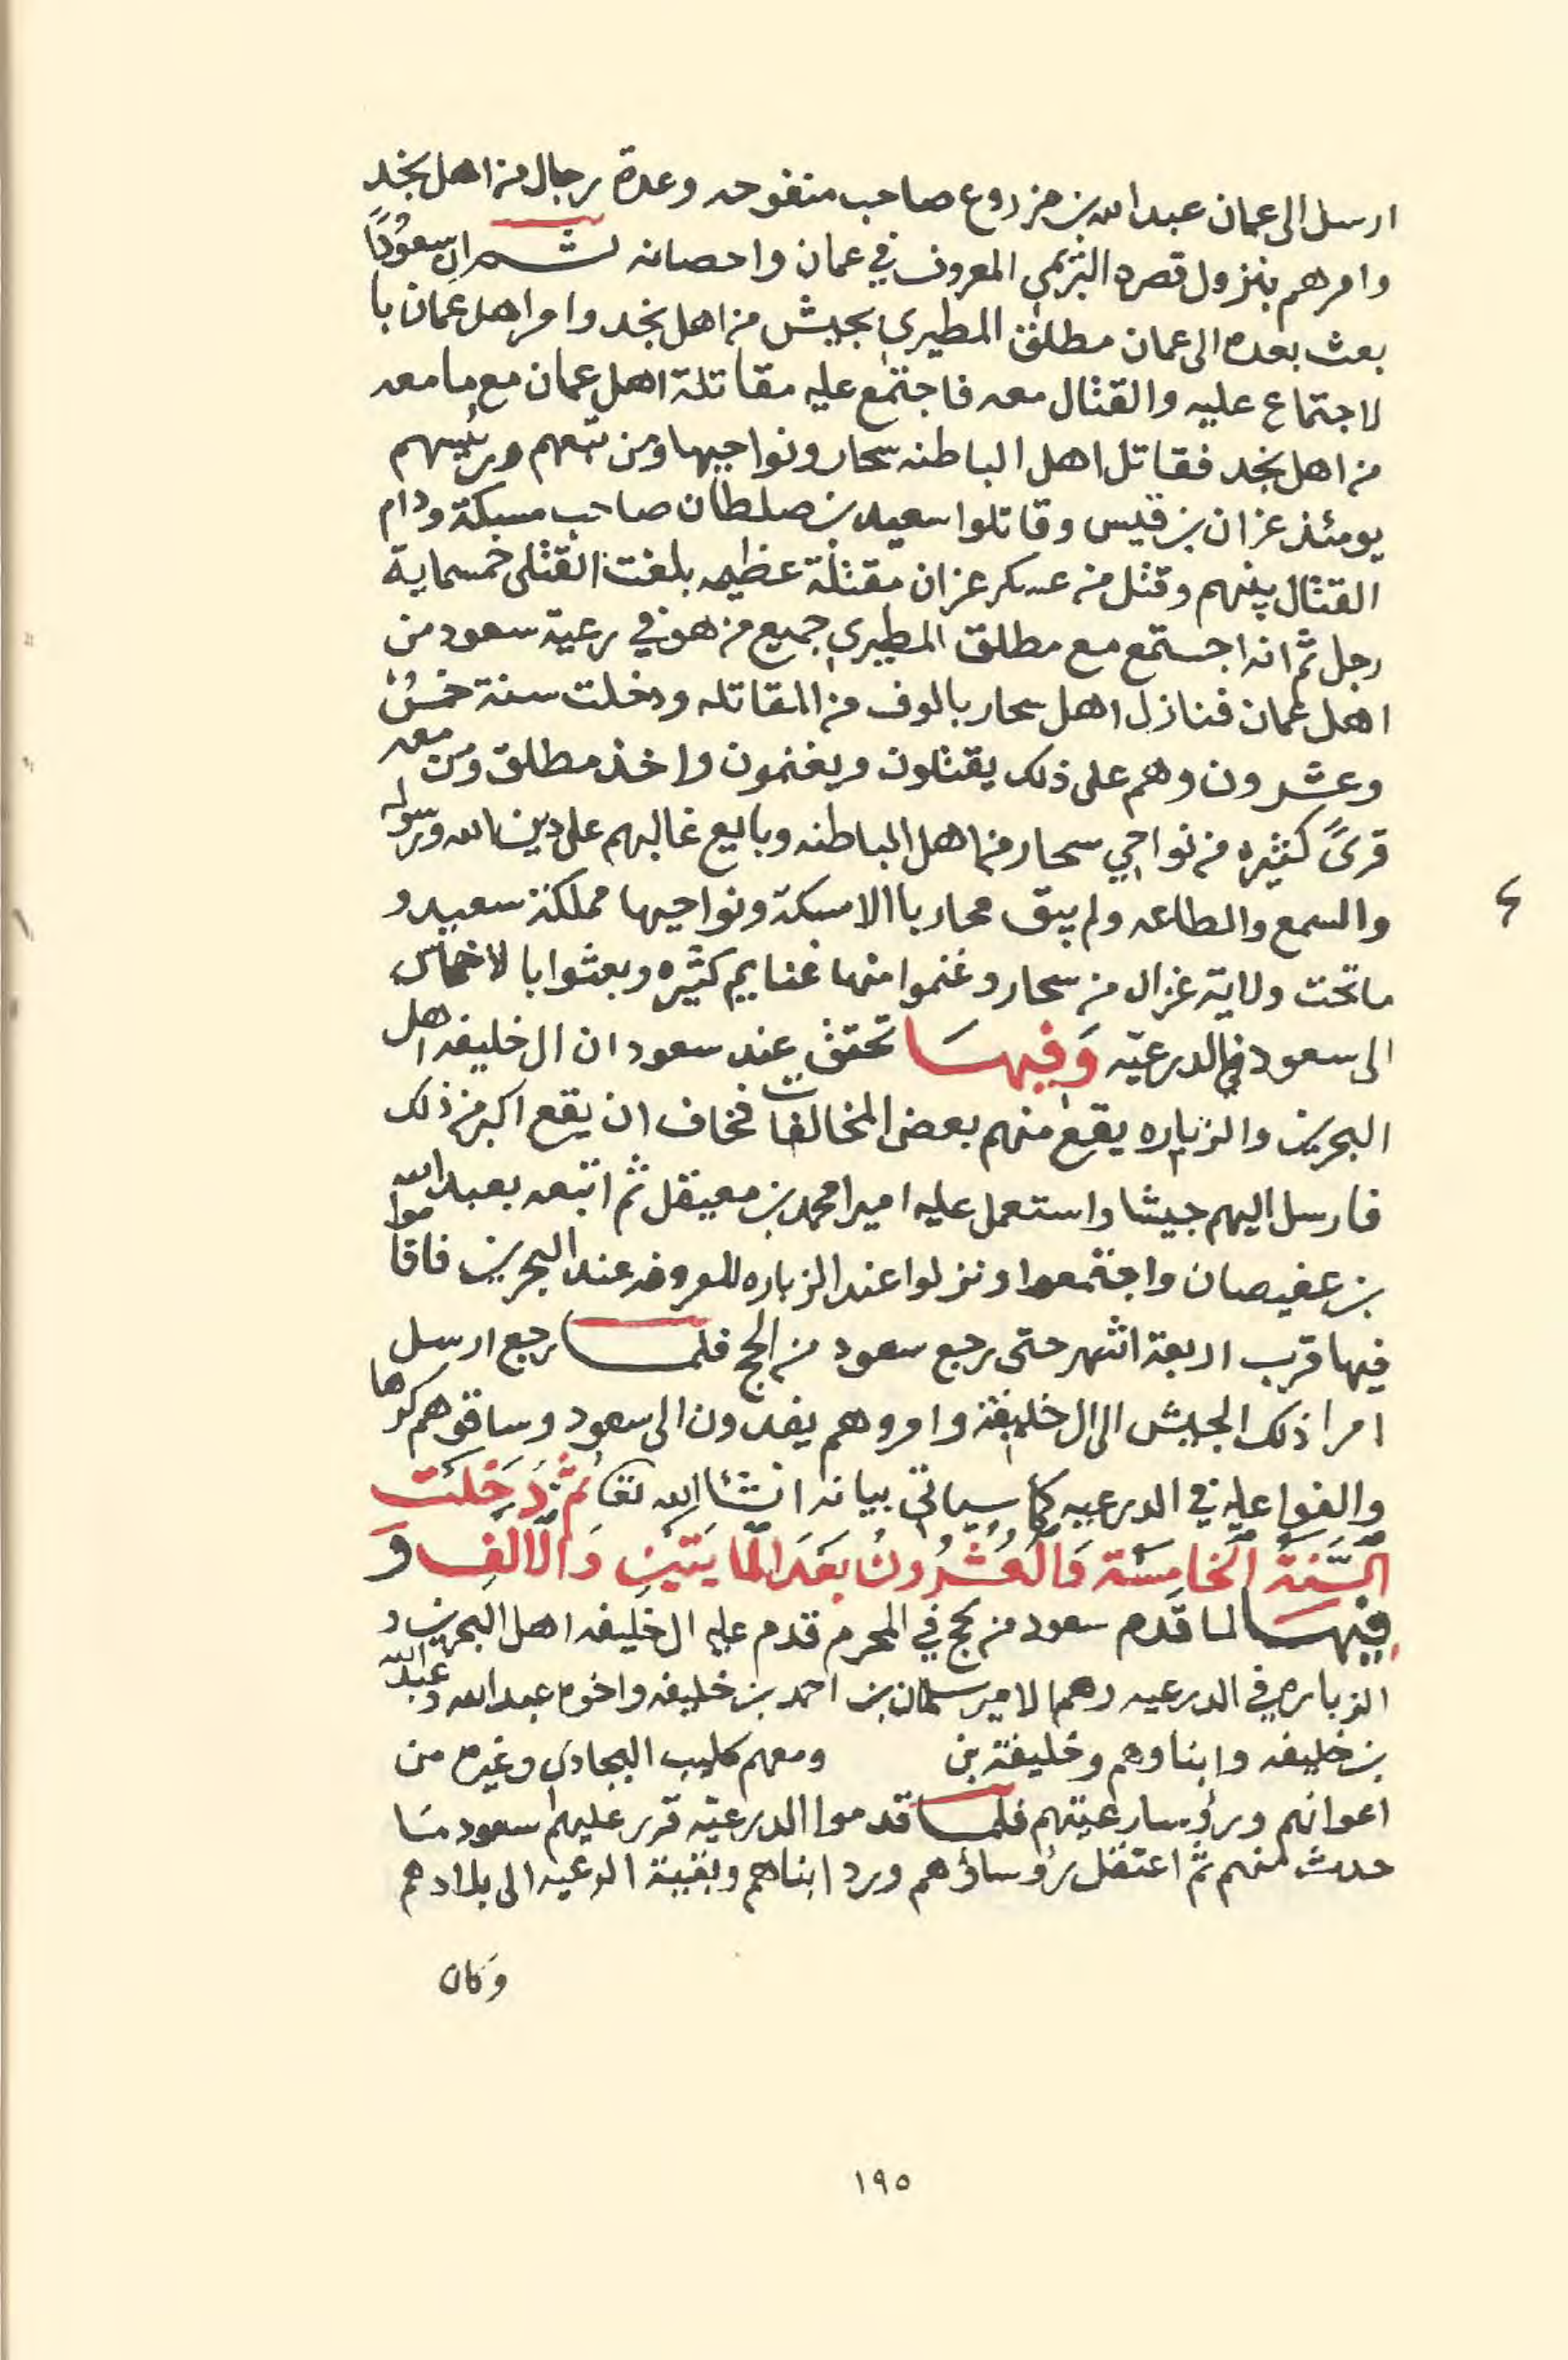 ارسل الى عمان عبدالله بن مزروع صاحب منفوحه وعدة رجال من اهل نجد
وامرهم بنزول قصره البريمي المعروف في عمان واحصانه ثم ان سعودًا
بعث بعده الى عمان مطلق المطيري بجيش من اهل نجد وامر اهل عمان با
لاجتماع عليه والقتال معه فاجتمع عليه مقاتلة اهل عمان مع ما معه
من اهل نجد فقاتل اهل الباطنه سحار ونواحيها ومن تبعهم ورئيسهم
يومئذ عزان بن قيس وقاتلوا سعيد بن صلطان صاحب مسكة ودام
القتال بينهم وقتل من عسكر عزان مقتلة عظيمه بلغت القتلى خمسماية
رجل ثم انه اجتمع مع مطلق المطيري جميع من هو في رعية سعود من
اهل عمان فنازل اهل سحار بالوف من المقاتله ودخلت سنة خمس
وعشرون وهم على ذلك يقتلون ويغنمون واخذ مطلق ومن معه
قرىً كثيره من نواحي سحار من اهل الباطنه وبايع غالبهم على دين الله ورسوله
والسمع والطاعه ولم يبق محاربا الا مسكة ونواحيها مملكة سعيد و
ما تحت ولاية غزال من سحار وغنموا منها غنايم كثيره وبعثوا بالاخماس
الى سعود في الدرعيّه وَفيهَا تحقق عند سعود ان ال خليفه اهل
البحرين والزباره يقع منهم بعض المخالفات فخاف ان يقع اكبر من ذلك
فارسل اليهم جيشا واستعمل عليه اميرا محمد بن معيقل ثم اتبعه بعبدالله
بن عفيصان واجتمعوا ونزلوا عند الزباره المعروفه عند البحرين فاقاموا
فيها قرب اربعة اشهر حتى رجع سعود من الحج فلما رجع ارسل
امرا ذلك الجيش الى ال خليفة وامروهم يفدون الى سعود وساقوهم كرها
والفوا عليه في الدرعيه كما سياتي بيانه انشا الله تعا ثمَّ دَخَلَت
السَّنَةُ الخَامِسَة وَالعُشْرُونُ بَعدَ المايَتَينِ وَالالفِ وَ
فيهَا لما قَدم سعود من حج في المحرم قدم عليه ال خليفه اهل البحرين و
الزباره في الدرعيه وهم الامير سلمان بن احمد بن خليفه واخوه عبدالله وعبدالله
بن خليفه وابناوهم وخليفة بن ومعهم كليب البجادي وغيره من
اعوانهم ورؤسا رعيتهم فلما قدموا الدرعيّه قرر عليهم سعود مَا
حدث منهم ثم اعتقل رؤساؤهم ورد ابناهم وبقية الرعيه الى بلادهم
وَكان
١٩٥